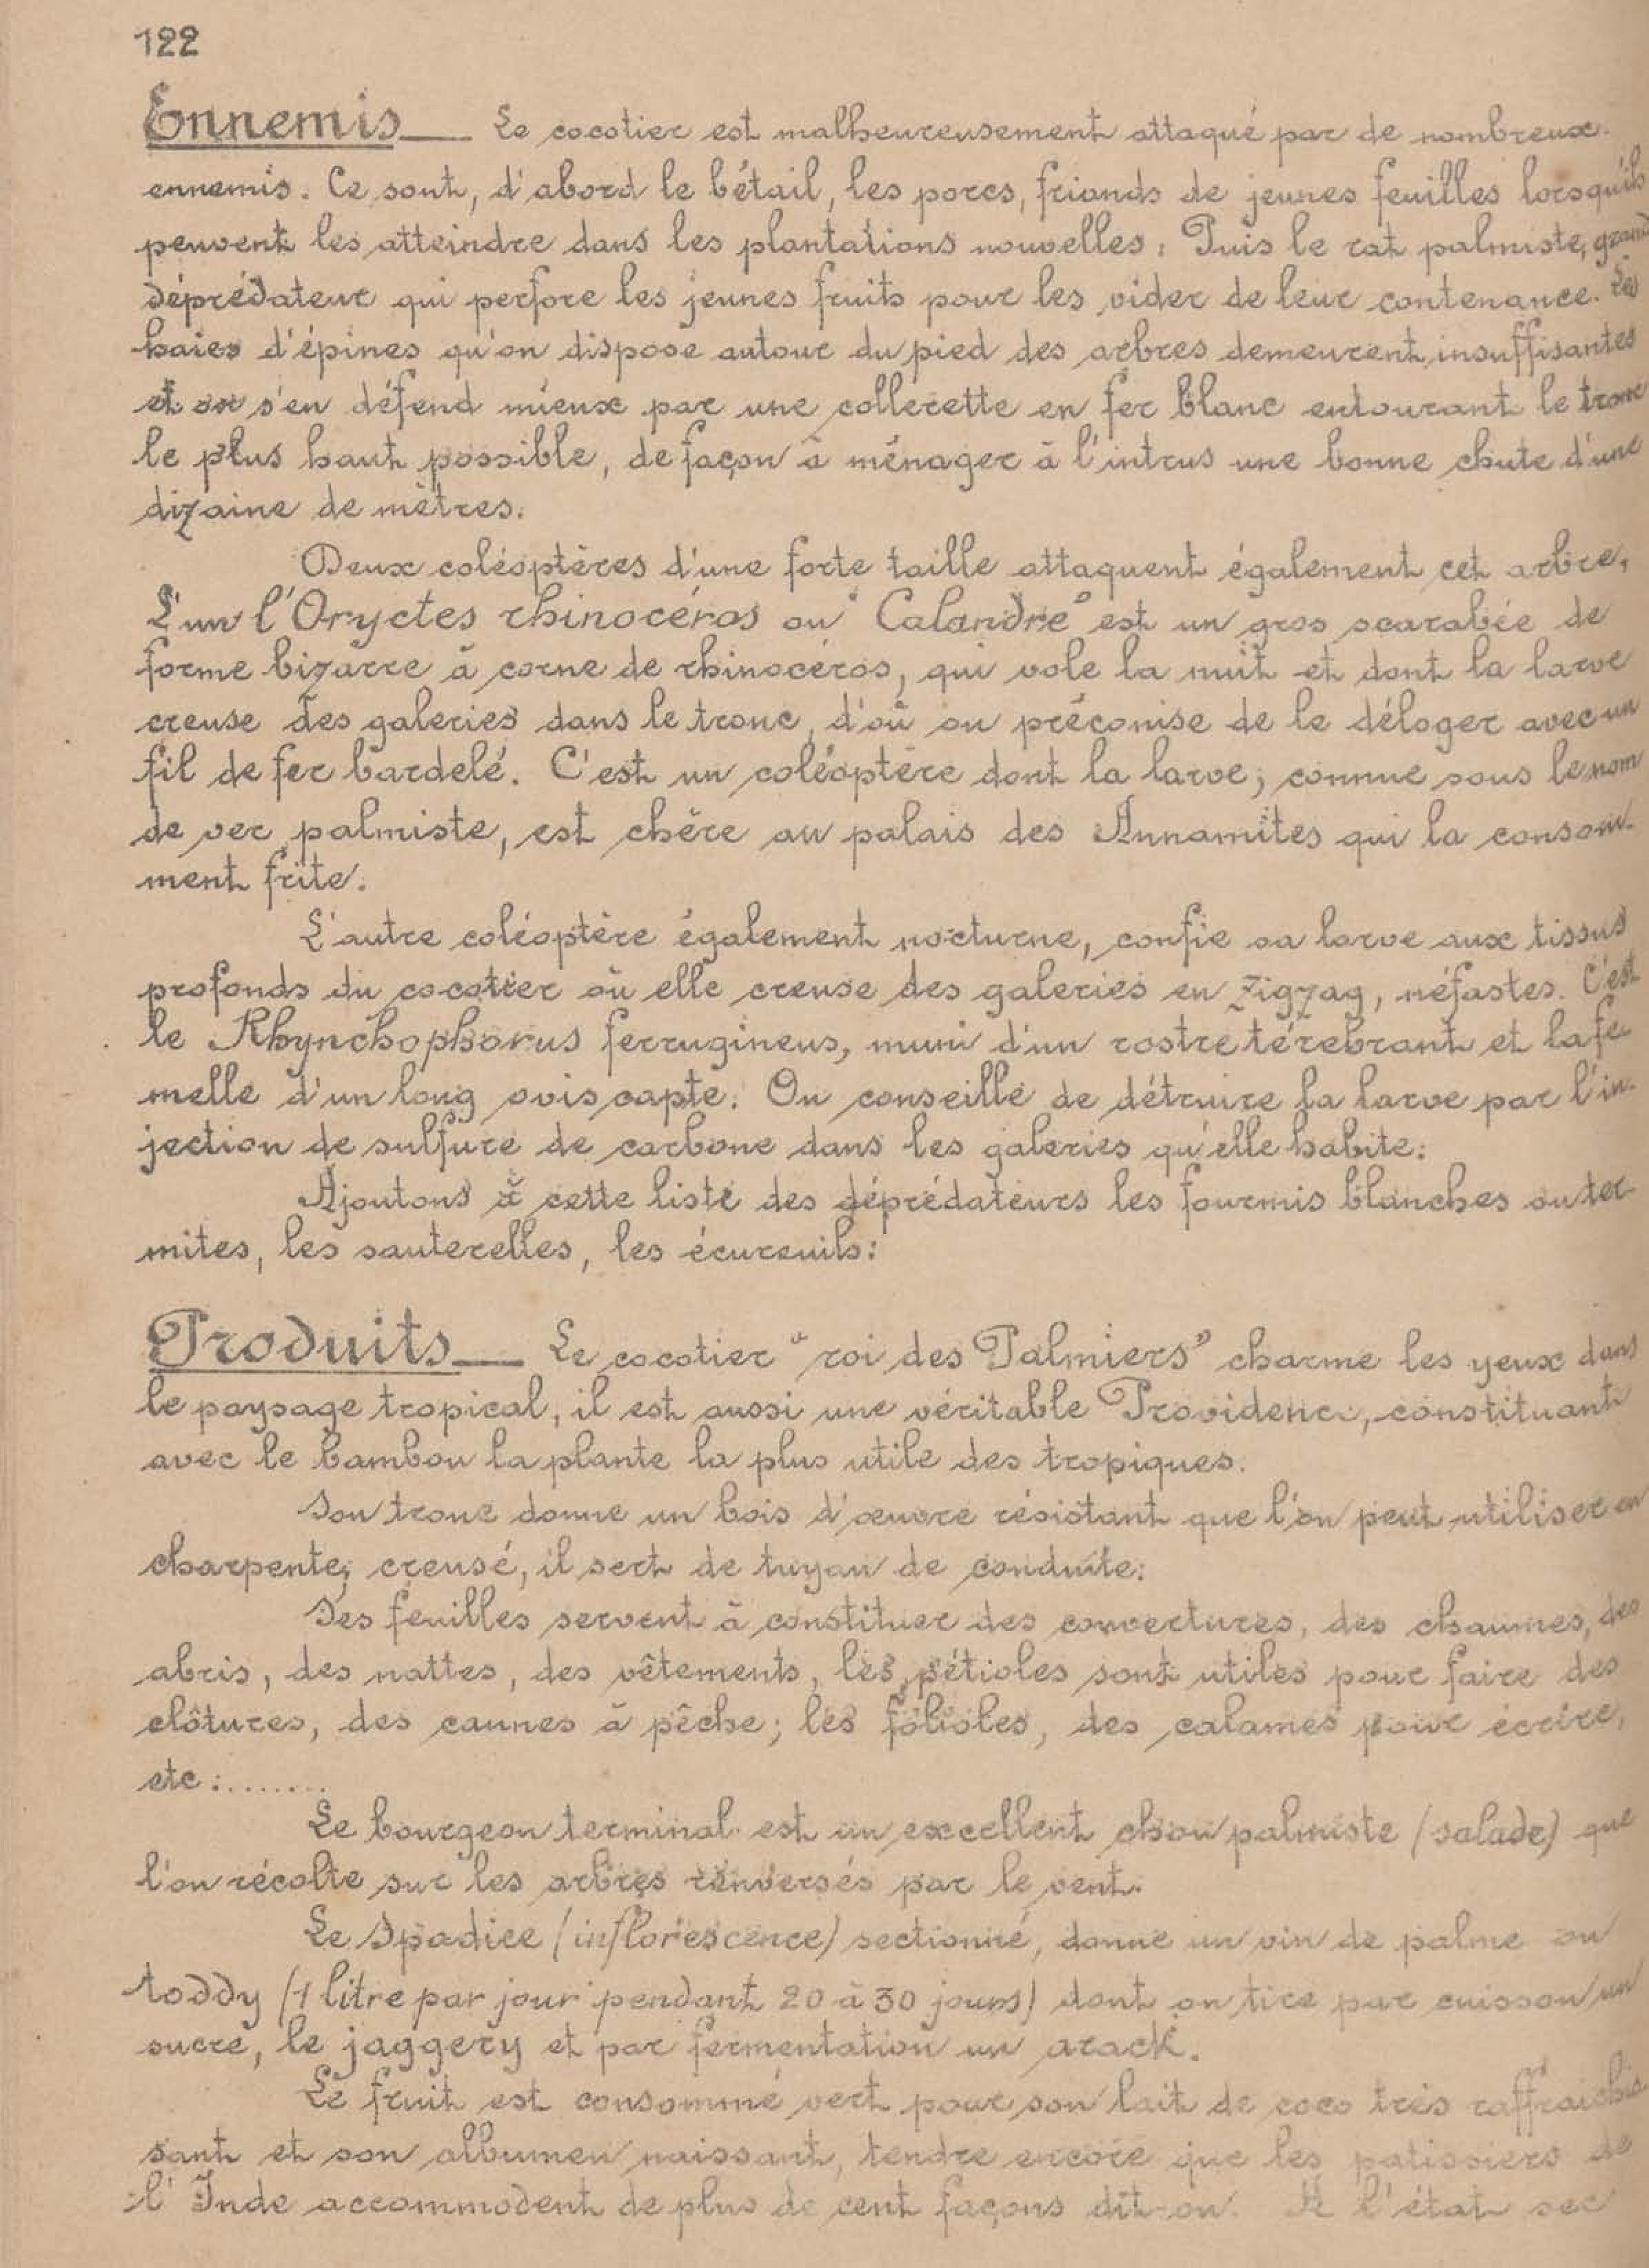 122
Ennemis — Le cocotier est malheureusement attaqué par de nombreux
ennemis. Ce sont, d'abord le bétail, les porcs, friands de jeunes feuilles lorsqu'ils
peuvent les atteindre dans les plantations nouvelles : Puis le rat palmiste, grand
déprédateur qui perfore les jeunes fruits pour les vider de leur contenance. Les
haies d'épines qu'on dispose autour du pied des arbres demeurent insuffisantes
et on s'en défend mieux par une collerette en fer blanc entourant le tronc
le plus haut possible, de façon à ménager à l'intrus une bonne chute d'une
dizaine de mètres.
Deux coléoptères d'une forte taille attaquent également cet arbre,
L'un l'Oryctes rhinocéros ou "Calandre" est un gros scarabée de
forme bizarre à corne de rhinocéros, qui vole la nuit et dont la larve
creuse des galeries dans le tronc, d'où on préconise de le déloger avec un
fil de fer bardelé. C'est un coléoptère dont la larve, connue sous le nom
de ver palmiste, est chère au palais des Annamites qui la consom-
ment frite.
L'autre coléoptère également nocturne, confie sa larve aux tissus
profonds du cocotier où elle creuse des galeries en zigzag, néfastes. C'est
le Rhynchophorus ferrugineus, muni d'un rostre térébrant et la fe-
melle d'un long oviscapte. On conseille de détruire la larve par l'in-
jection de sulfure de carbone dans les galeries qu'elle habite.
Ajoutons à cette liste des déprédateurs les fourmis blanches ou ter-
mites, les sauterelles, les écureuils.
Produits — Le cocotier "roi des Palmiers" charme les yeux dans
le paysage tropical, il est aussi une véritable Providence, constituant
avec le bambou la plante la plus utile des tropiques.
Son tronc donne un bois d'œuvre résistant que l'on peut utiliser en
charpente; creusé, il sert de tuyau de conduite.
Ses feuilles servent à constituer des couvertures, des chaumes, des
abris, des nattes, des vêtements, les pétioles sont utiles pour faire des
clôtures, des cannes à pêche; les folioles, des calames pour écrire,
etc........
Le bourgeon terminal est un excellent chou palmiste (salade) que
l'on récolte sur les arbres renversés par le vent.
Le Spadice (inflorescence) sectionné, donne un vin de palme ou
toddy (1 litre par jour pendant 20 à 30 jours) dont on tire par cuisson un
sucre, le jaggery et par fermentation un arack.
Le fruit est consommé vert pour son lait de coco très raffraichis-
sant et son albumen naissant, tendre encore que les patissiers de
l'Inde accommodent de plus de cent façons dit-on. A l'état sec